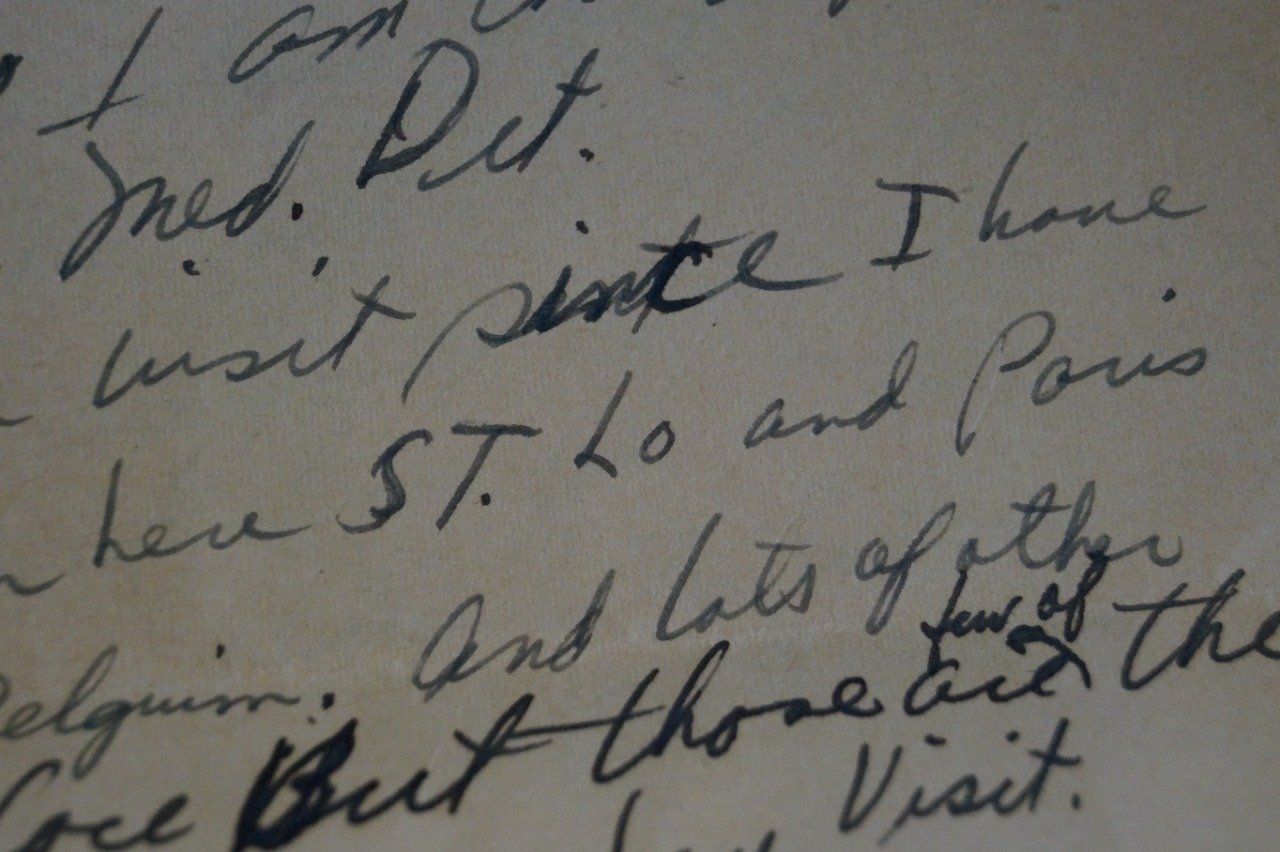 I am
Med. Det.
visit since I have
here ST. Lo and Paris
Belguim. And lots of other
few of
But those are the
Visit.